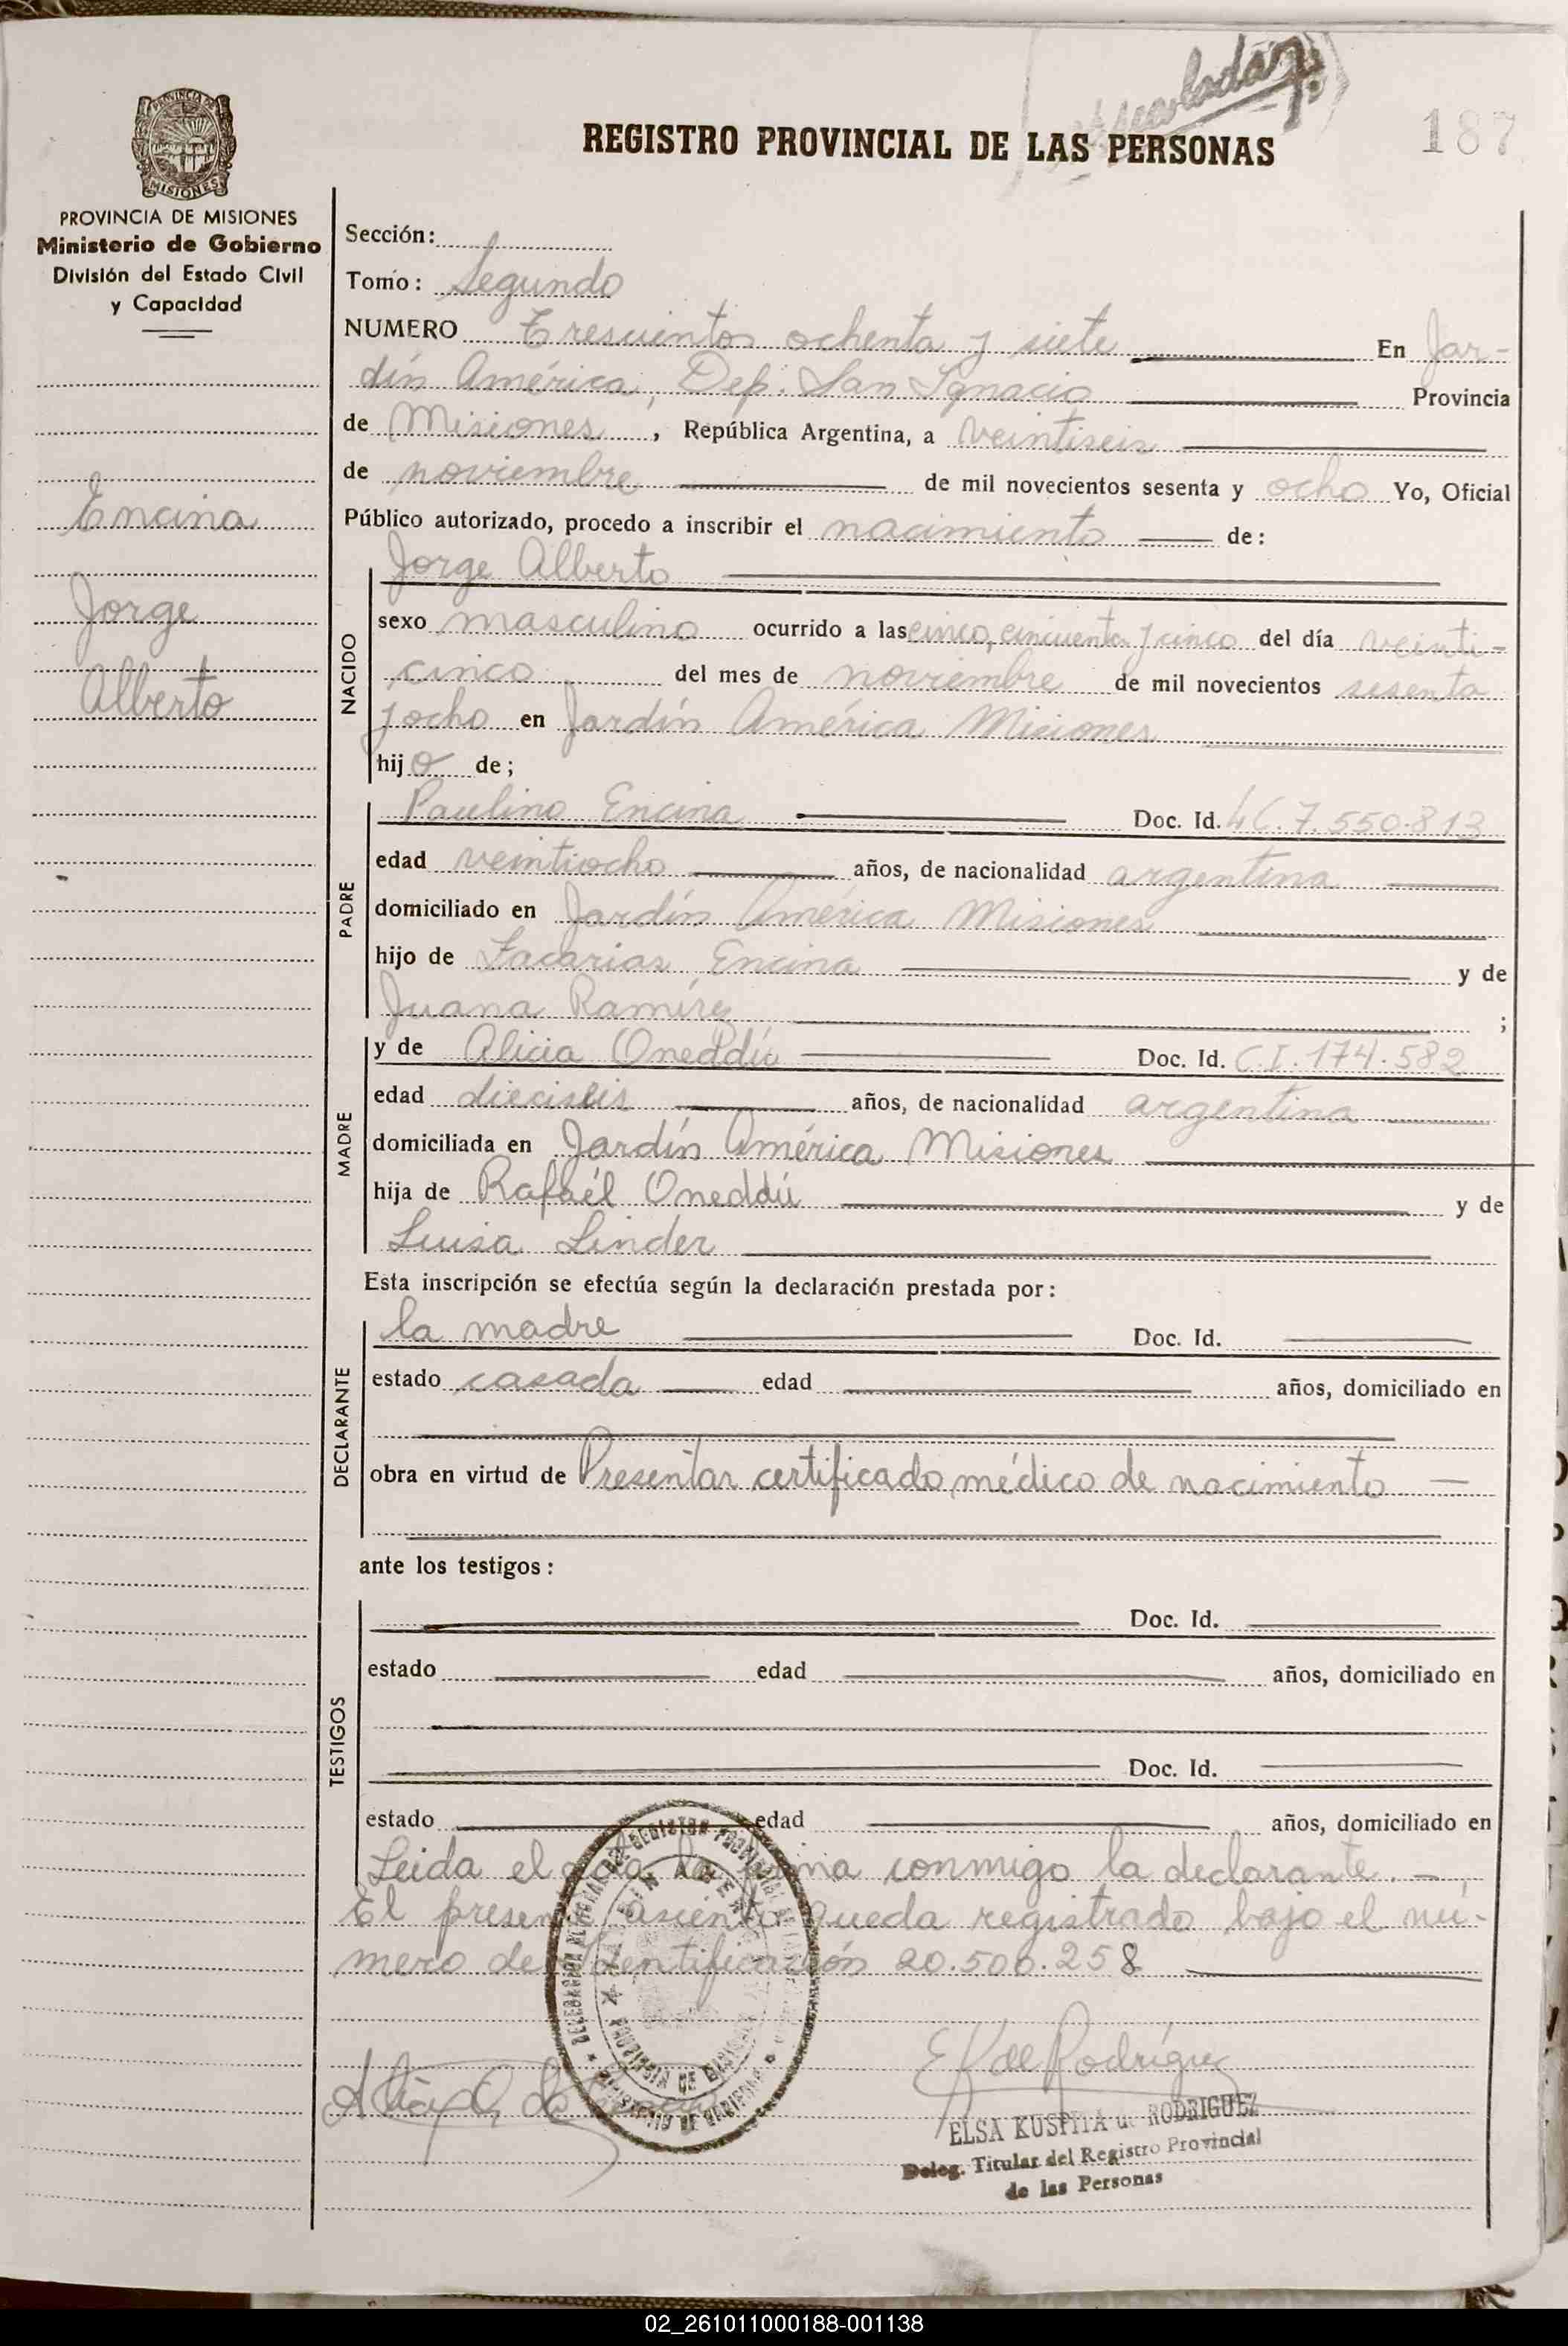 187
REGISTRO PROVINCIAL DE LAS PERSONAS
PROVINCIA DE MISIONES
Ministerio de Gobierno
División del Estado Civil
y Capacidad
Encina
Jorge
Alberto
Sección:
Tomo: Segundo
NUMERO Trescientos ochenta y siete En Jar-
dín América, Dep. San Ignacio Provincia
de Misiones, República Argentina, a veintiseis
de noviembre de mil novecientos sesenta y ocho Yo, Oficial
Público autorizado, procedo a inscribir el nacimiento de:
Jorge Alberto
NACIDO
sexo masculino ocurrido a las cinco, cincuenta y cinco del día veinti-
cinco del mes de noviembre de mil novecientos sesenta
y ocho en Jardín América Misiones
hijo de;
PADRE
Paulino Encina Doc. Id. 7.550.813
edad veintiocho años, de nacionalidad argentina
domiciliado en Jardín América Misiones
hijo de Zacarias Encina y de
Juana Ramírez ;
MADRE
y de Alicia Oneddú Doc. Id. C.I. 174.582
edad dieciseis años, de nacionalidad argentina
domiciliada en Jardín América Misiones
hija de Rafaél Oneddú y de
Luisa Linder
Esta inscripción se efectúa según la declaración prestada por:
DECLARANTE
la madre Doc. Id.
estado casada edad años, domiciliado en
obra en virtud de Presentar certificado médico de nacimiento
ante los testigos:
TESTIGOS
Doc. Id.
estado edad años, domiciliado en
Doc. Id.
estado edad años, domiciliado en
Leida el acta, la firma conmigo la declarante.
El presente asiento queda registrado bajo el nú-
mero de identificación 20.506.258
E K de Rodríguez
ELSA KUSPITA de RODRIGUEZ
Deleg. Titular del Registro Provincial
de las Personas
PROVINCIA DE MISIONES
MINISTERIO DE GOBIERNO
02_261011000188-001138